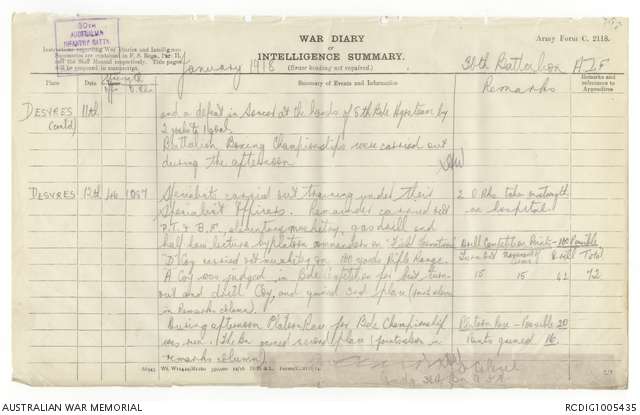 WAR DIARY
OF
INTELLIGENCE SUMMARY.
(Erase heading not required.)
Army Form C. 2118.
AUSTRALIAN
INFANTRY BATTN.
Instructions regarding War Diaries and Intelligence
Summaries are contained in F. S. Regs., Part II.
and the Staff Manual respectively. Title pages
will be prepared in manuscript.
January 1918
36th Battalion A.I.F
Place
Date
Summary of Events and Information
Remarks and
references to
Appendices
Remarks
DESVRES
(contd)
11th
and a defeat in Soccer at the hands of 9th Bde by
2 goals to 1 goal.
Battalion Boxing Championships were carried out
during the afternoon
DESVRES
12th
46
1007
Specialists carried out training under their
Specialist Officers. Remainder carried out
P.T. & B.F., elementary musketry, gas drill and
half hour lecture by Platoon commanders on "Field Formation"
"D" Coy carried out musketry on 100 yards Rifle Range.
A Coy was judged in Bde Competition for best turn
out and drill Coy, and gained 3rd place
in Remarks column).
During afternoon Platoon Race for Bde Championship
was run. This Bn gained second place (points shown in
remarks column)
2 O Rks taken on strength
ex hospital
Drill Competition Points
Possible
Turnout
Drill
Total
15
15
72
Platoon Race - Possible 20
Points gained 16.
AUSTRALIAN WAR MEMORIAL
RCDIG1005435